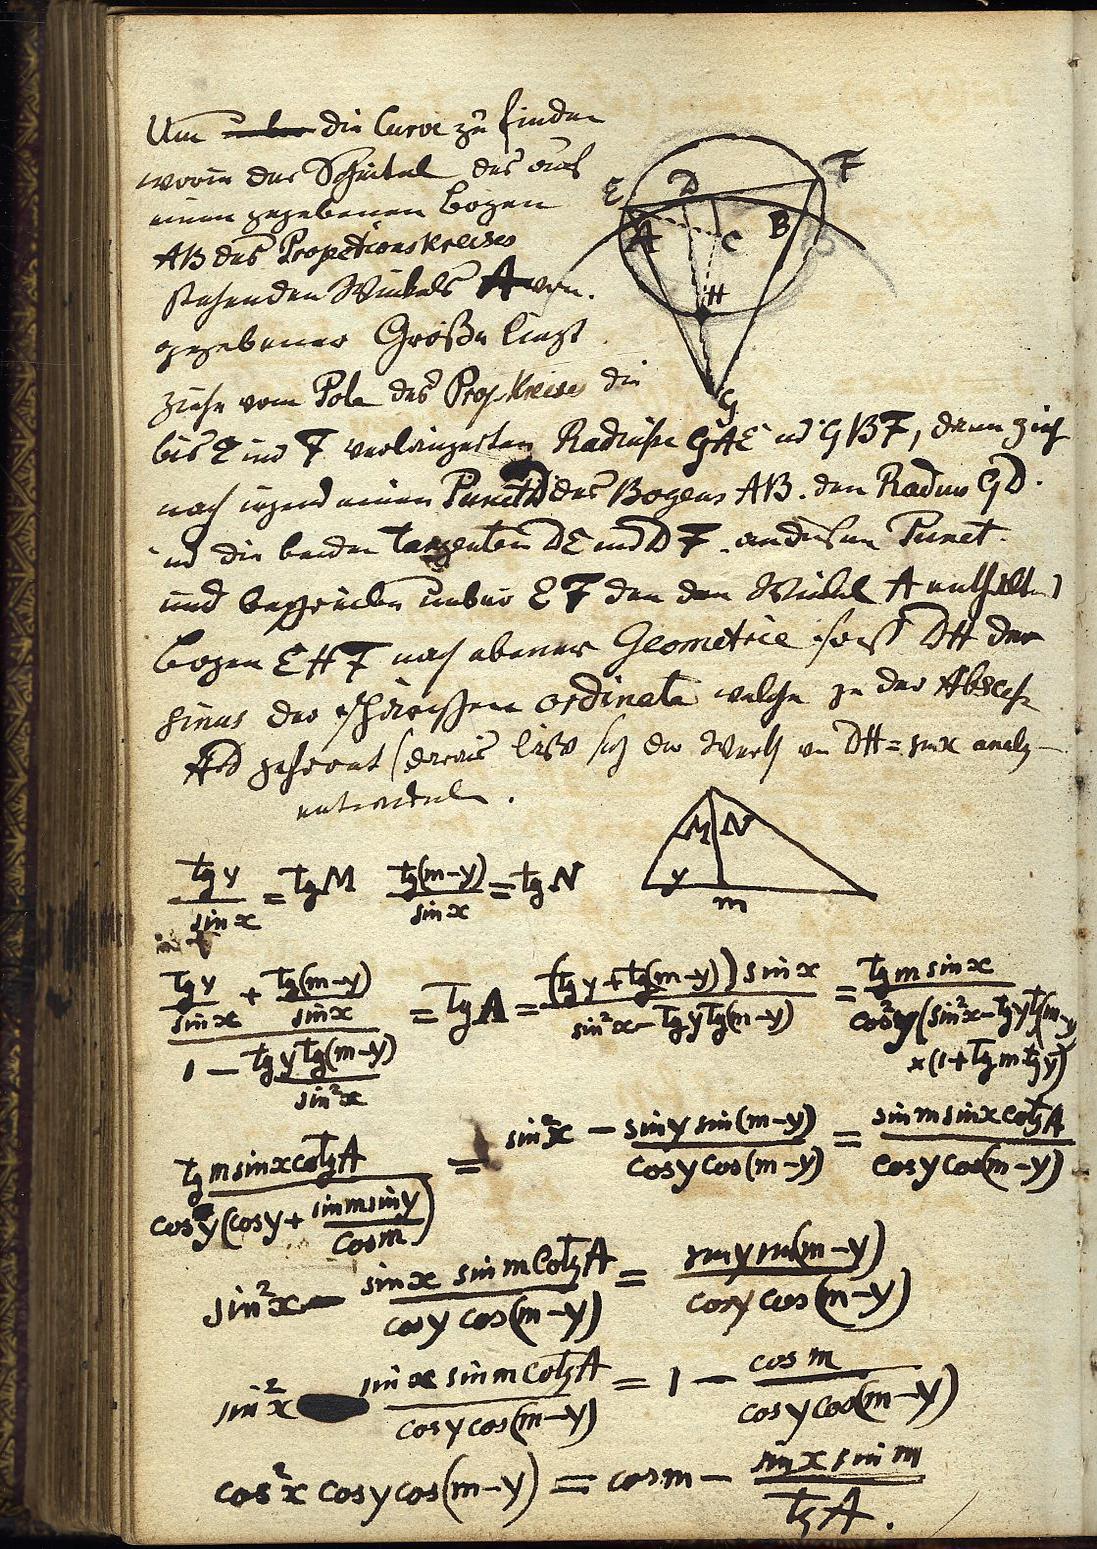 Um die Curve zu finden
worin der Scheitel des auf
einem gegebenen Bogen
AB des Projectionskreises
stehenden Winkels A von
gegebener Größe liegt
ziehe vom Pole des Proj Kreises die
bis E und F verlängerten Radiusse GAE und GBF, dann zieh
nach irgend einem Punct D des Bogens AB. den Radius GD.
und die beiden Tangenten DE und DF an diesem Punct.
und über EF den den Winkel A enthalt.
bogen EHF nach ebener Geometrie so ist DH der
sinus der sphärischen ordinate welche zu der Absciss
AD gehoret (daraus läßt sich der Werth von DH = sin x analy-
entwickeln.
E D F
A C B
H
G
M N
y
m
tg y / sin x = tg M   tg(m-y) / sin x = tg N
(tg y / sin x + tg(m-y) / sin x) / (1 - tg y tg(m-y) / sin²x) = tg A = (tg y + tg(m-y)) sin x / (sin²x - tg y tg(m-y)) = tg m sin x / cos²y (sin²x - tg y t(m-y)
× (1 + tg m tg y)
tg m sin x cotg A / cos y (cos y + sin m sin y / cos m) = sin²x - sin y sin(m-y) / cos y cos(m-y) = sin m sin x cotg A / cos y cos(m-y)
sin²x - sin x sin m Cotg A / cos y cos(m-y) = sin y sin(m-y) / cos y cos(m-y)
sin²x sin x sin m cotg A / cos y cos(m-y) = 1 - cos m / cos y cos(m-y)
cos²x cos y cos(m-y) = cos m - sin x sin m / tg A.